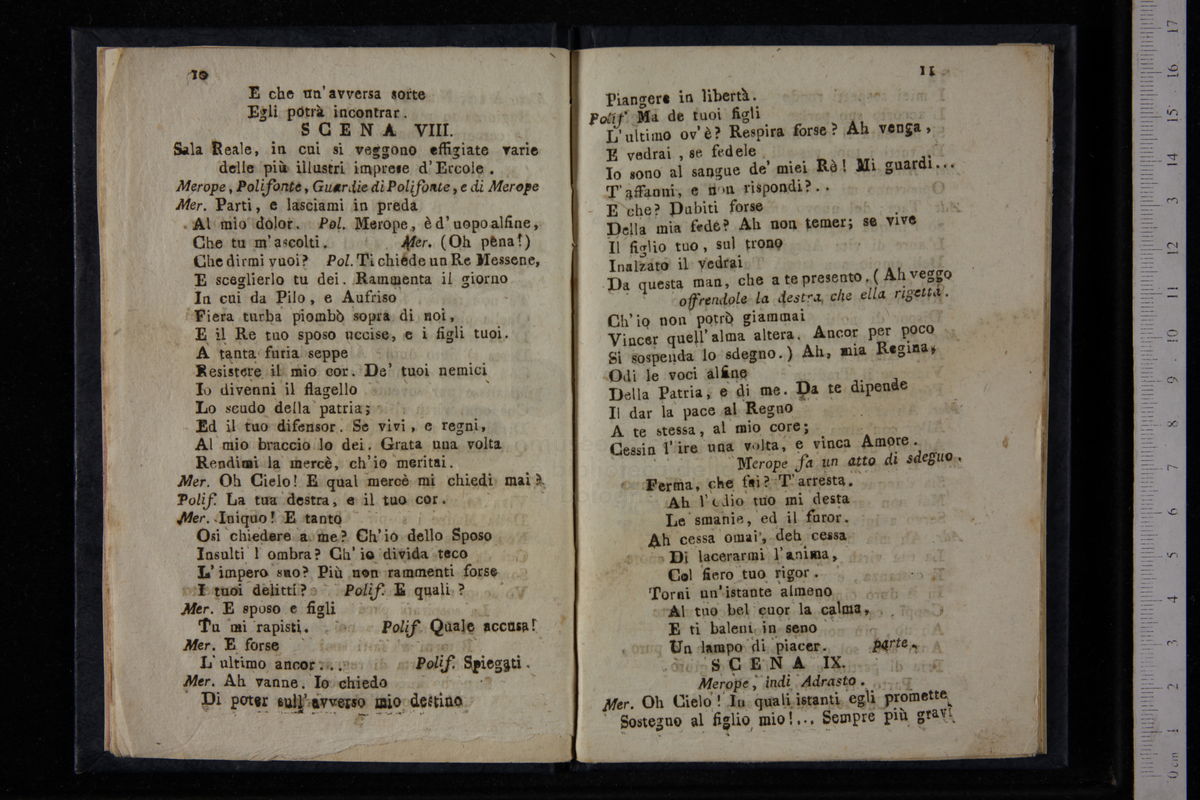 10
E che un'avversa sorte
Egli potrà incontrar.
SCENA VIII.
Sala Reale, in cui si veggono effigiate varie
delle più illustri imprese d'Ercole.
Merope, Polifonte, Guardie di Polifonte, e di Merope
Mer. Parti, e lasciami in preda
Al mio dolor. Pol. Merope, è d'uopo alfine,
Che tu m'ascolti. Mer. (Oh pena!)
Che dirmi vuoi? Pol. Ti chiede un Re Messene,
E sceglierlo tu dei. Rammenta il giorno
In cui da Pilo, e Aufriso
Fiera turba piombò sopra di noi,
E il Re tuo sposo uccise, e i figli tuoi.
A tanta furia seppe
Resistere il mio cor. De' tuoi nemici
Io divenni il flagello
Lo scudo della patria;
Ed il tuo difensor. Se vivi, e regni,
Al mio braccio lo dei. Grata una volta
Rendimi la mercè, ch'io meritai.
Mer. Oh Cielo! E qual mercè mi chiedi mai?
Polif. La tua destra, e il tuo cor.
Mer. Iniquo! E tanto
Osi chiedere a me? Ch'io dello Sposo
Insulti l ombra? Ch'io divida teco
L'impero suo? Più non rammenti forse
I tuoi delitti? Polif. E quali?
Mer. E sposo e figli
Tu mi rapisti. Polif. Quale accusa!
Mer. E forse
L'ultimo ancor... Polif. Spiegati.
Mer. Ah vanne. Io chiedo
Di poter sull'avverso mio destino
11
Piangere in libertà.
Polif. Ma de tuoi figli
L'ultimo ov'è? Respira forse? Ah venga,
E vedrai, se fedele
Io sono al sangue de' miei Rè! Mi guardi...
T'affanni, e non rispondi?..
E che? Dubiti forse
Della mia fede? Ah non temer; se vive
Il figlio tuo, sul trono
Inalzato il vedrai
Da questa man, che a te presento. (Ah veggo
offrendole la destra, che ella rigetta.
Ch'io non potrò giammai
Vincer quell'alma altera. Ancor per poco
Si sospenda lo sdegno.) Ah, mia Regina,
Odi le voci alfine
Della Patria, e di me. Da te dipende
Il dar la pace al Regno
A te stessa, al mio core;
Cessin l'ire una volta, e vinca Amore.
Merope fa un atto di sdeguo.
Ferma, che fai? T'arresta.
Ah l'odio tuo mi desta
Le smanie, ed il furor.
Ah cessa omai, deh cessa
Di lacerarmi l'anima,
Col fiero tuo rigor.
Torni un'istante almeno
Al tuo bel cuor la calma,
E ti baleni in seno
Un lampo di piacer. parte.
SCENA IX.
Merope, indi Adrasto.
Mer. Oh Cielo! In quali istanti egli promette
Sostegno al figlio mio!... Sempre più gravi